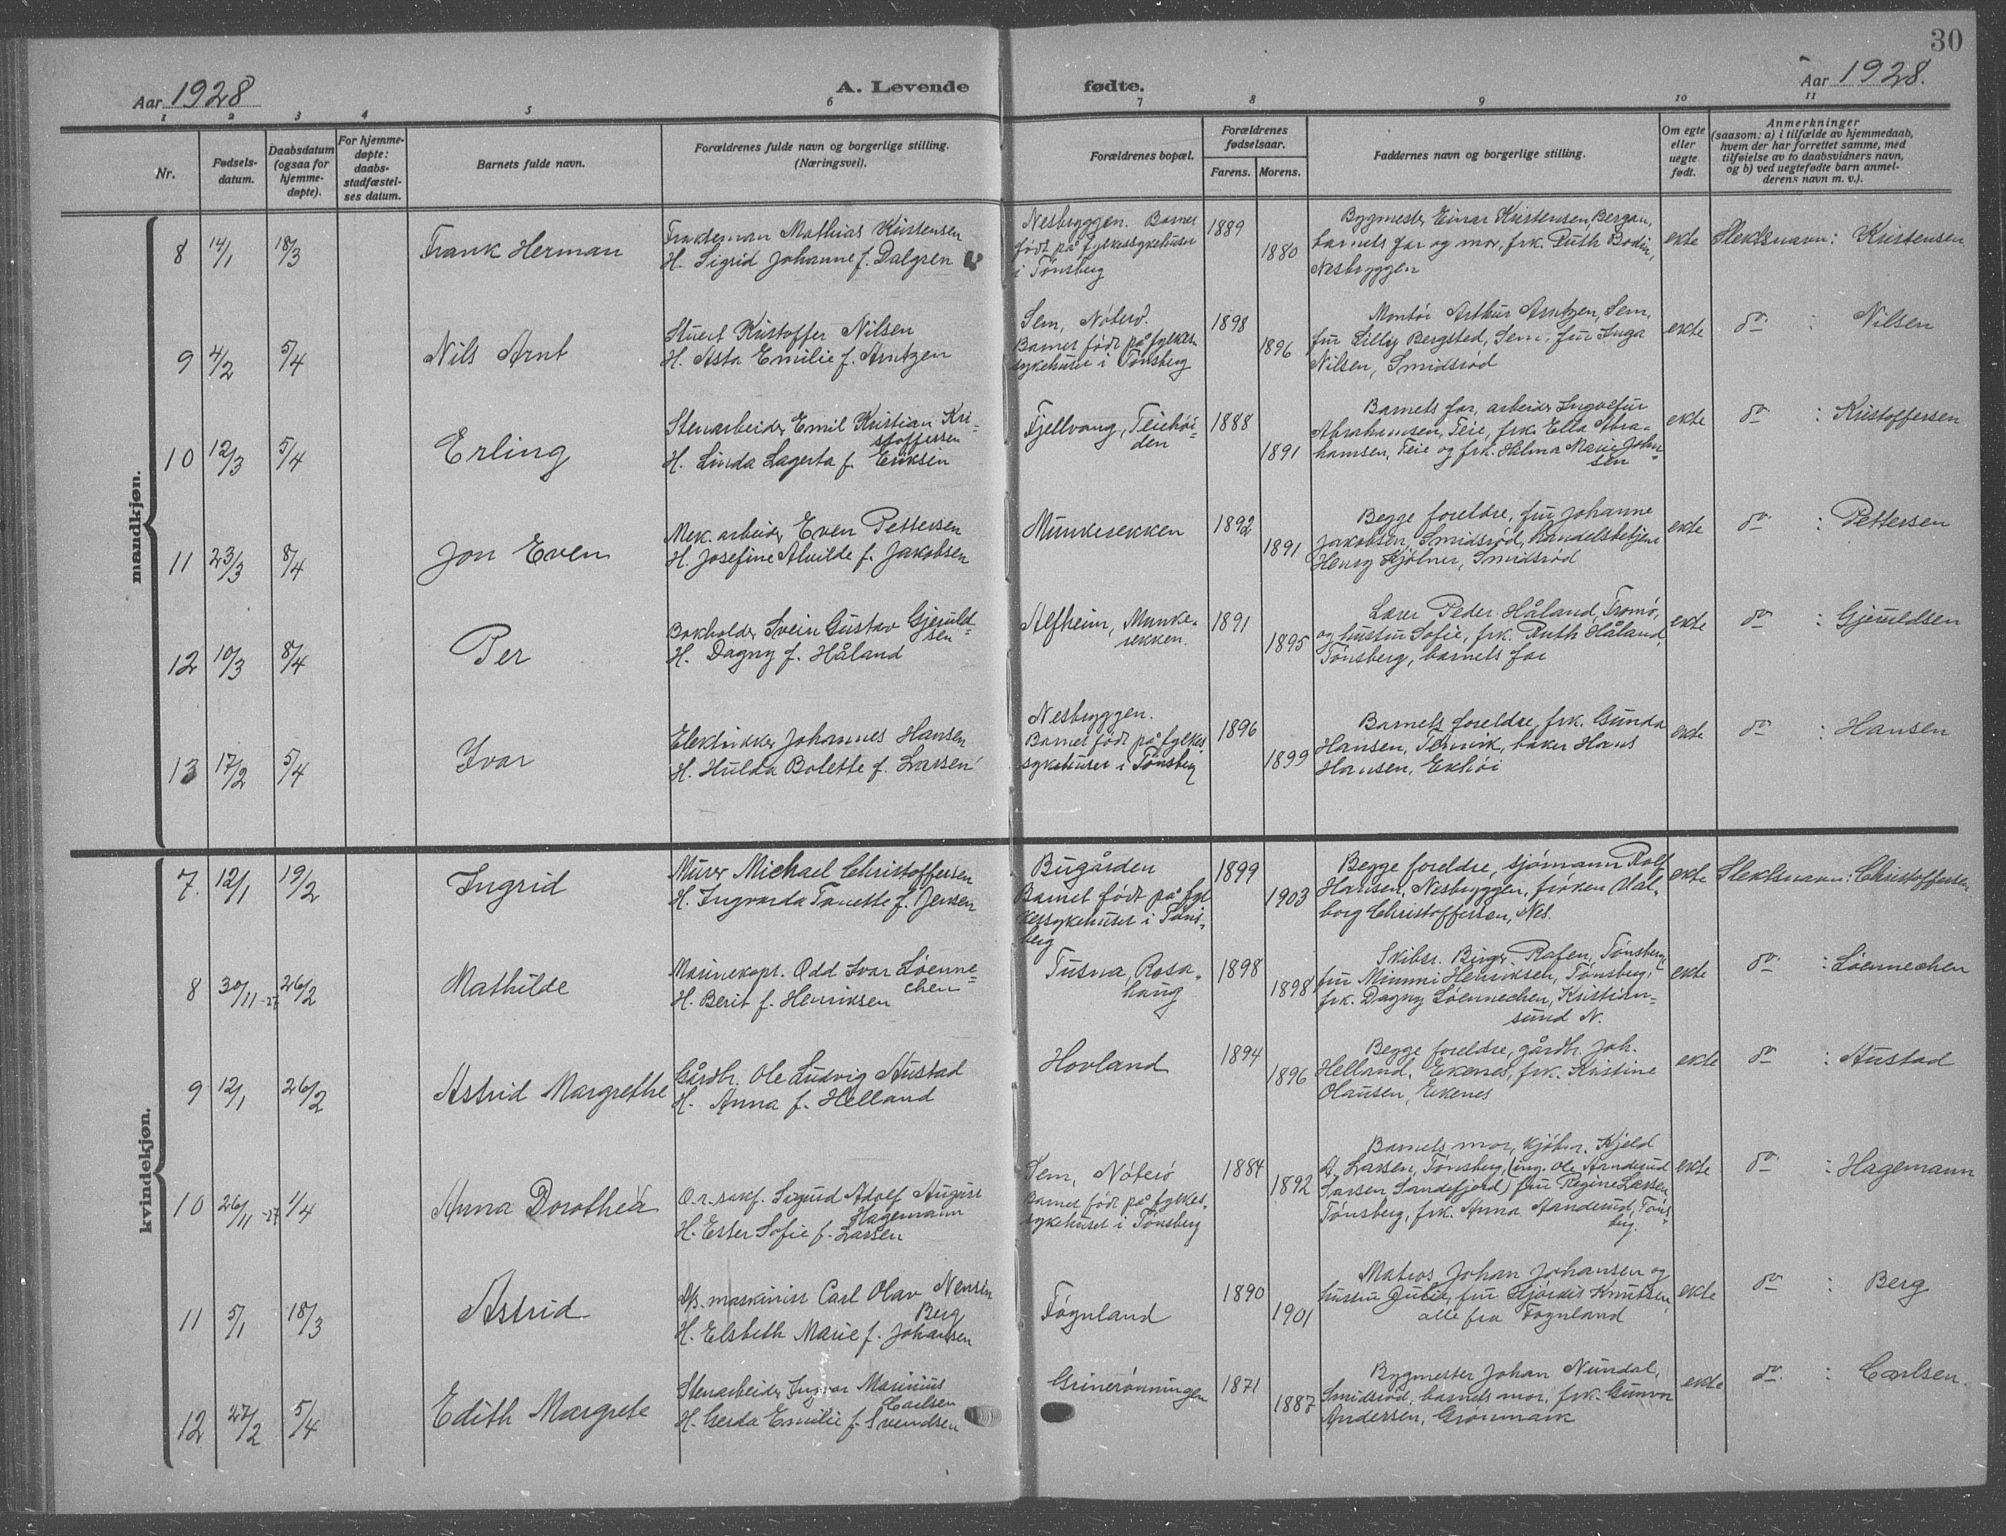 30
Aar 1928
A. Levende fødte.
Aar 1928.
1 2 3 4 5 6 7 8 9 10 11
Nr.
Fødsels-
datum.
Daabsdatum
(ogsaa for
hjemme-
døpte).
For hjemme-
døpte:
daabs-
stadfæstel-
ses datum.
Barnets fulde navn.
Forældrenes fulde navn og borgerlige stilling.
(Næringsvei).
Forældrenes bopæl.
Forældrenes
fødselsaar.
Farens. Morens.
Faddernes navn og borgerlige stilling.
Om egte
eller
uegte
født.
Anmerkninger
(saasom: a) i tilfælde av hjemmedaab,
hvem der har forrettet samme, med
tilføielse av to daabsvidners navn,
og b) ved uegtefødte barn anmel-
derens navn m. v.).
mandkjøn.
8 14/1 18/3 Frank Herman
Fraktеman Mathias Kristensen
H. Sigrid Johanne f. Dalgren
Nesbryggen. Barnet
født på fylkessykehuset
i Tønsberg
1889 1880
Bygmester Einar Kristensen, Bergan,
barnets far og mor, frk. Ruth Bodin,
Nesbryggen
ekte Slektsnavn: Kristensen
9 4/2 5/4 Nils Arnt
Stuert Kristoffer Nilsen
H. Asta Emilie f. Arntzen
Sem, Nøterø.
Barnet født på fylkes-
sykehuset i Tønsberg
1898 1896
Montør Arthur Arntzen, Sem,
fru Lilly Bergsted, Sem, fru Inga
Nilsen, Smidsrød
ekte do : Nilsen
10 12/3 5/4 Erling
Stenarbeider Emil Kristian Kri-
stoffersen
H. Linda Lagerta f. Eriksen
Fjellvang, Teiehøi-
den
1888 1891
Barnets far, arbeider Ingvefur
Abrahamsen, Teie, frk. Ella Abra-
hamsen, Teie og frk. Halma Marie Johan-
sen
ekte do : Kristoffersen
11 23/3 8/4 Jon Even
Mek. arbeider Even Pettersen
H. Josefine Alvilde f. Jakobsen
Munkerekken
1892 1891
Begge foreldre, fru Johanne
Jakobsen, Smidsrød, handelsbetjent
Henry Kjølner, Smidsrød
ekte do : Pettersen
12 10/3 8/4 Per
Bokholder Svein Gustav Gjeruld-
sen
H. Dagny f. Håland
Alfheim, Munke-
rekken.
1891 1895
Lærer Peder Håland, Tromø,
og hustru Sofie, frk. Ruth Håland,
Tønsberg, barnets far
ekte do : Gjeruldsen
13 17/2 5/4 Ivar
Elektrikker Johannes Hansen
H. Hulda Bolette f. Larsen
Nesbryggen.
Barnet født på fylkes-
sykehuset i Tønsberg
1896 1899
Barnets foreldre, frk. Gunda
Hansen, Tenvik, baker Hans
Hansen, Ekhøi
ekte do : Hansen
kvindekjøn.
7. 12/1 19/2 Ingrid
Murer Michael Christoffersen
H. Ingvarda Tanette f. Jensen
Bugården
Barnet født på fyl
kessykehuset i Tøns-
berg
1899 1903
Begge foreldre, sjømann Rolf
Hansen, Nesbryggen, frøken Val-
borg Christoffersen, Nes.
ekte Slektsnavn: Christoffersen
8 30/11-27 26/2 Mathilde
Marinekapt. Odd Ivar Løenne-
chen
H. Berit f. Henriksen
Tusna, Rosa-
haug
1898 1898
Skibsr. Birger Rafen, Tønsberg,
fru Mimmi Henriksen, Tønsberg,
frk. Dagny Løennechen, Kristian-
sund N.
ekte do : Løennechen
9 12/1 26/2 Astrid Margrethe
Gårdbr. Ole Ludvig Austad
H. Anna f. Helland
Hovland
1894 1896
Begge foreldre, gårdbr. Joh.
Helland, Ekenes, frk. Kristine
Olausen, Ekenes
ekte do : Austad
10 26/11-27 1/4 Anna Dorothea
O.r. sakf. Sigurd Adolf August
Hagemann
H. Ester Sofie f. Larsen
Sem, Nøterø
Barnet født på fylkes-
sykehuset i Tønsberg
1884 1892
Barnets mor, kjøbm. Kjeld
A. Larsen, Tønsberg, (ing. Ole Aanderud
Larsen Sandefjord) fru Regine Larsen,
Tønsberg, frk. Anna Aanderud, Tøns-
berg.
ekte do : Hagemann
11 5/1 18/3 Astrid
D/S. maskinist Carl Olav Nensén
Berg
H. Elsbeth Marie f. Johansen
Føgnland
1890 1901
Matros Johan Johansen og
hustru Julie, fru Hjørdis Knutsen,
alle fra Føgnland
ekte do : Berg
12 27/2 5/4 Edith Margrete
Stenarbeider Ingvar Marinius
Carlsen
H. Gerda Emilie f. Svendsen
Grinerønningen
1871 1887
Bygmester Johan Nundal,
Smidsrød, barnets mor, frk. Gunvor
Andersen, Grønmark
ekte do. : Carlsen.